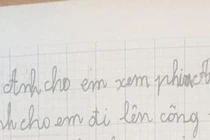 Anh cho em xem phim
h cho em đi lên công